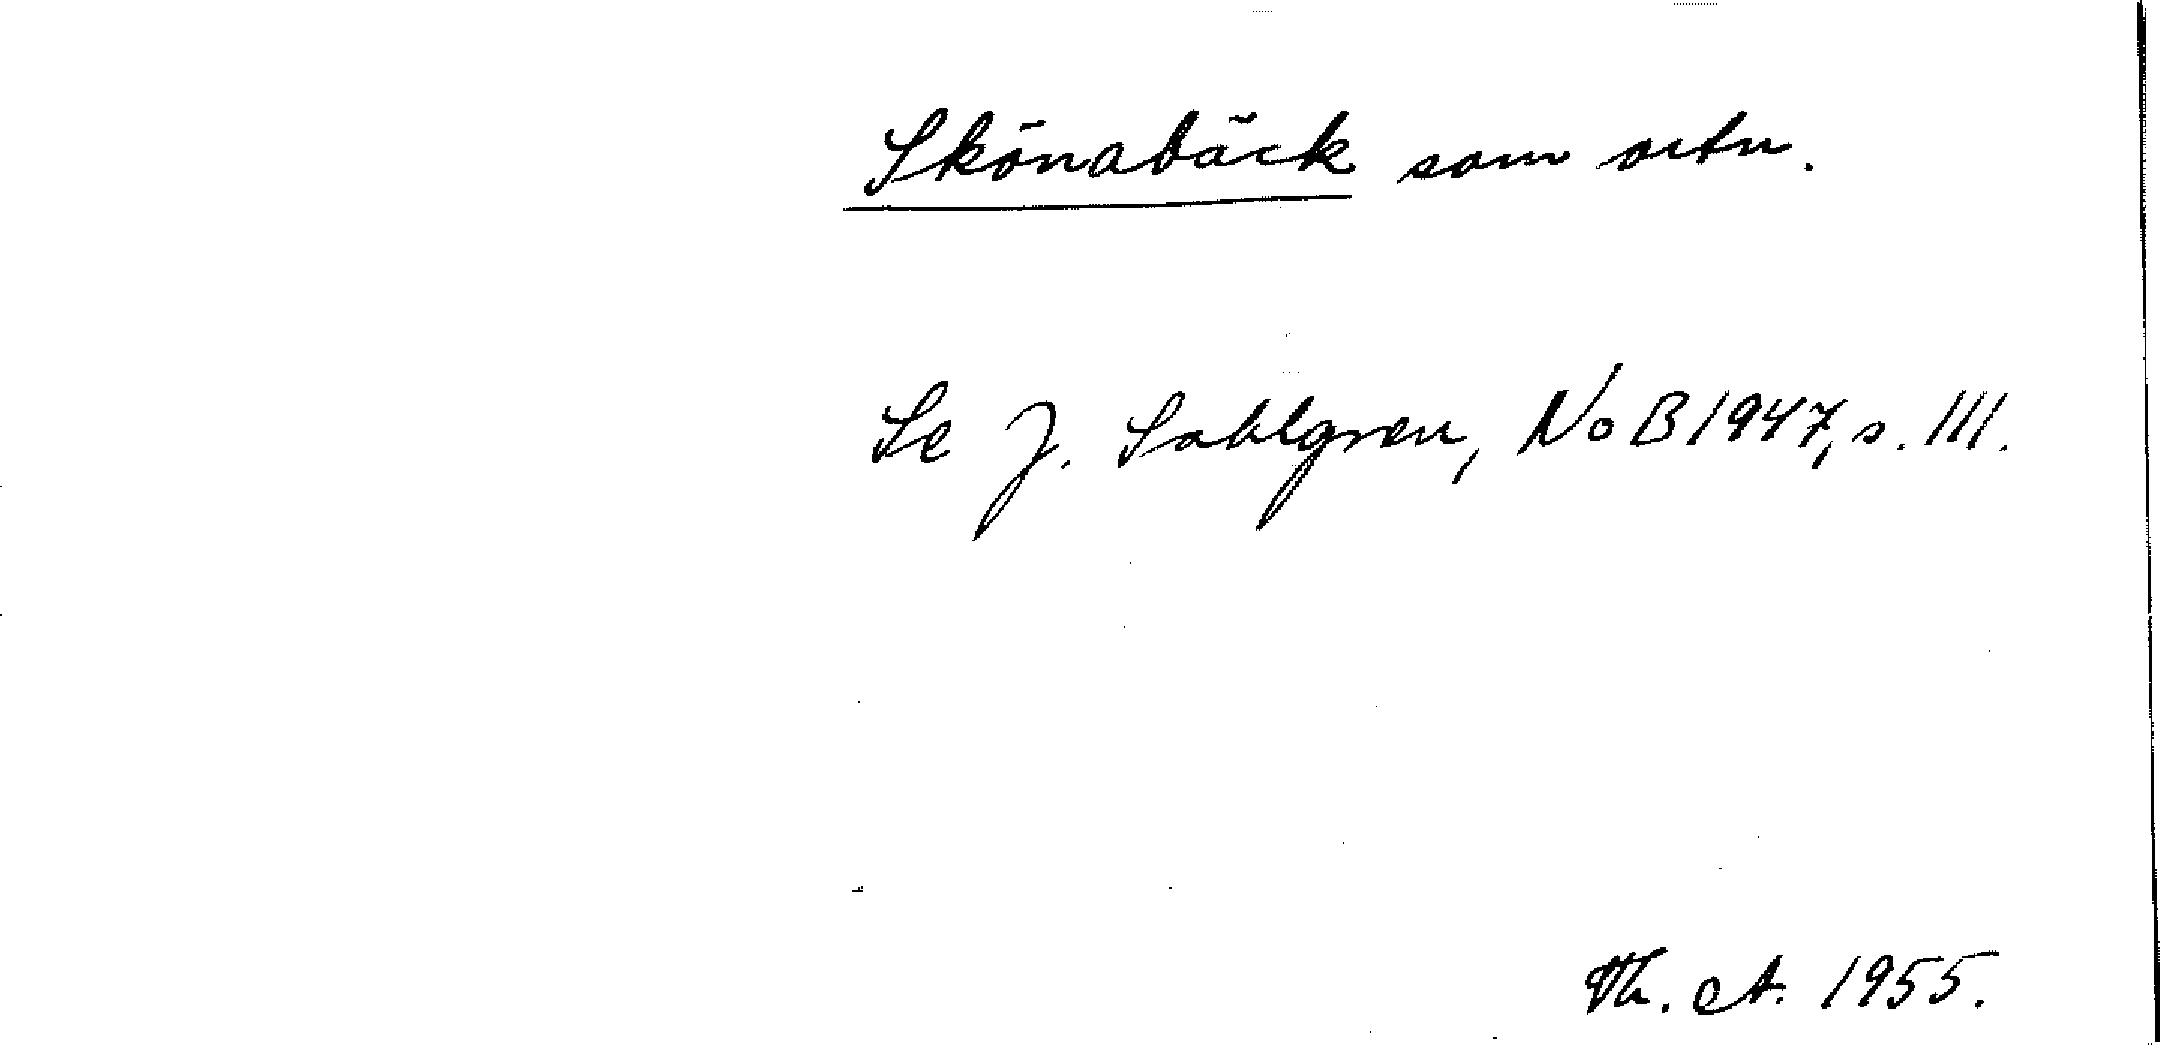 Skönabäck som ortn.
Se J. Sahlgren, NoB 1947, s. 111.
Th. A. 1955.